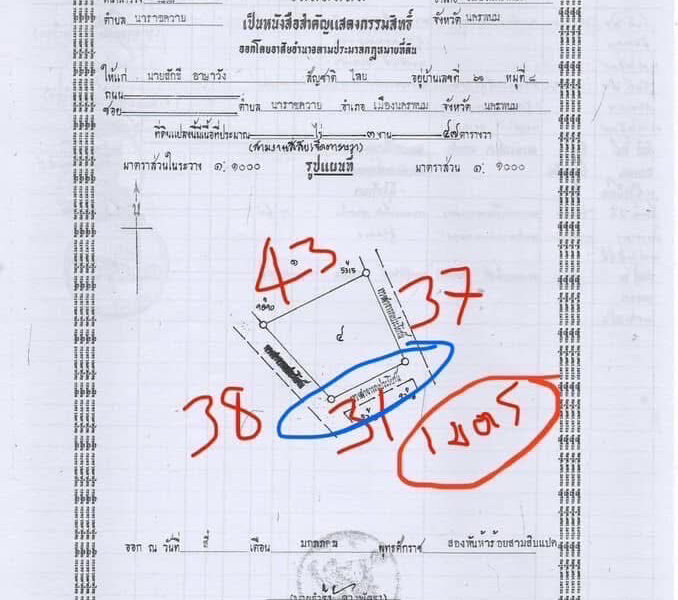 ตำบล นาราชควาย
เป็นหนังสือสำคัญแสดงกรรมสิทธิ์
จังหวัด นครพนม
ออกโดยอาศัยอำนาจตามประมวลกฎหมายที่ดิน
ให้แก่ อาษาวัง สัญชาติ ไทย อยู่บ้านเลขที่ ๖๑ หมู่ที่ ๘
ถนน
ซอย ตำบล นาราชควาย อำเภอ เมืองนครพนม จังหวัด นครพนม
ที่ดินแปลงนี้มีเนื้อที่ประมาณ ไร่ ๓ งาน ๔๗ ตารางวา
มาตราส่วนในระวาง ๑: ๑๐๐๐ รูปแผนที่ มาตราส่วน ๑: ๑๐๐๐
น
43
37
๔
38
31
เมตร
ทางสาธารณประโยชน์
ทางสาธารณประโยชน์
ทางสาธารณประโยชน์
ออก ณ วันที่ เดือน มกราคม พุทธศักราช สองพันห้าร้อยสามสิบแปด